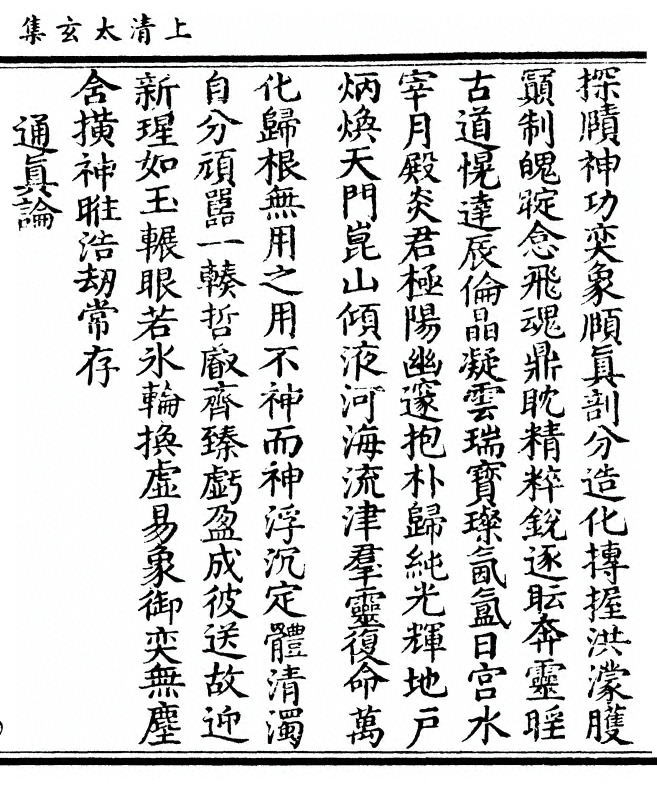 上清太玄集
探賾神功奕象順真剖分造化摶握洪濛
顛制魄 念飛魂鼎耽精粹銳逐 奔靈
古道幌達辰倫晶凝雲瑞寶璨氤氳日宮水
宰月殿炎君極陽幽邃抱朴歸純光輝地戶
炳煥天門崑山傾液河海流津羣靈復命萬
化歸根無用之用不神而神浮沉定體清濁
自分頑嚚一轅哲 齊臻虧盈成彼送故迎
新瑆如玉輾眼若氷輪換虛易象御奕無塵
含 神 浩刼常存
通真論